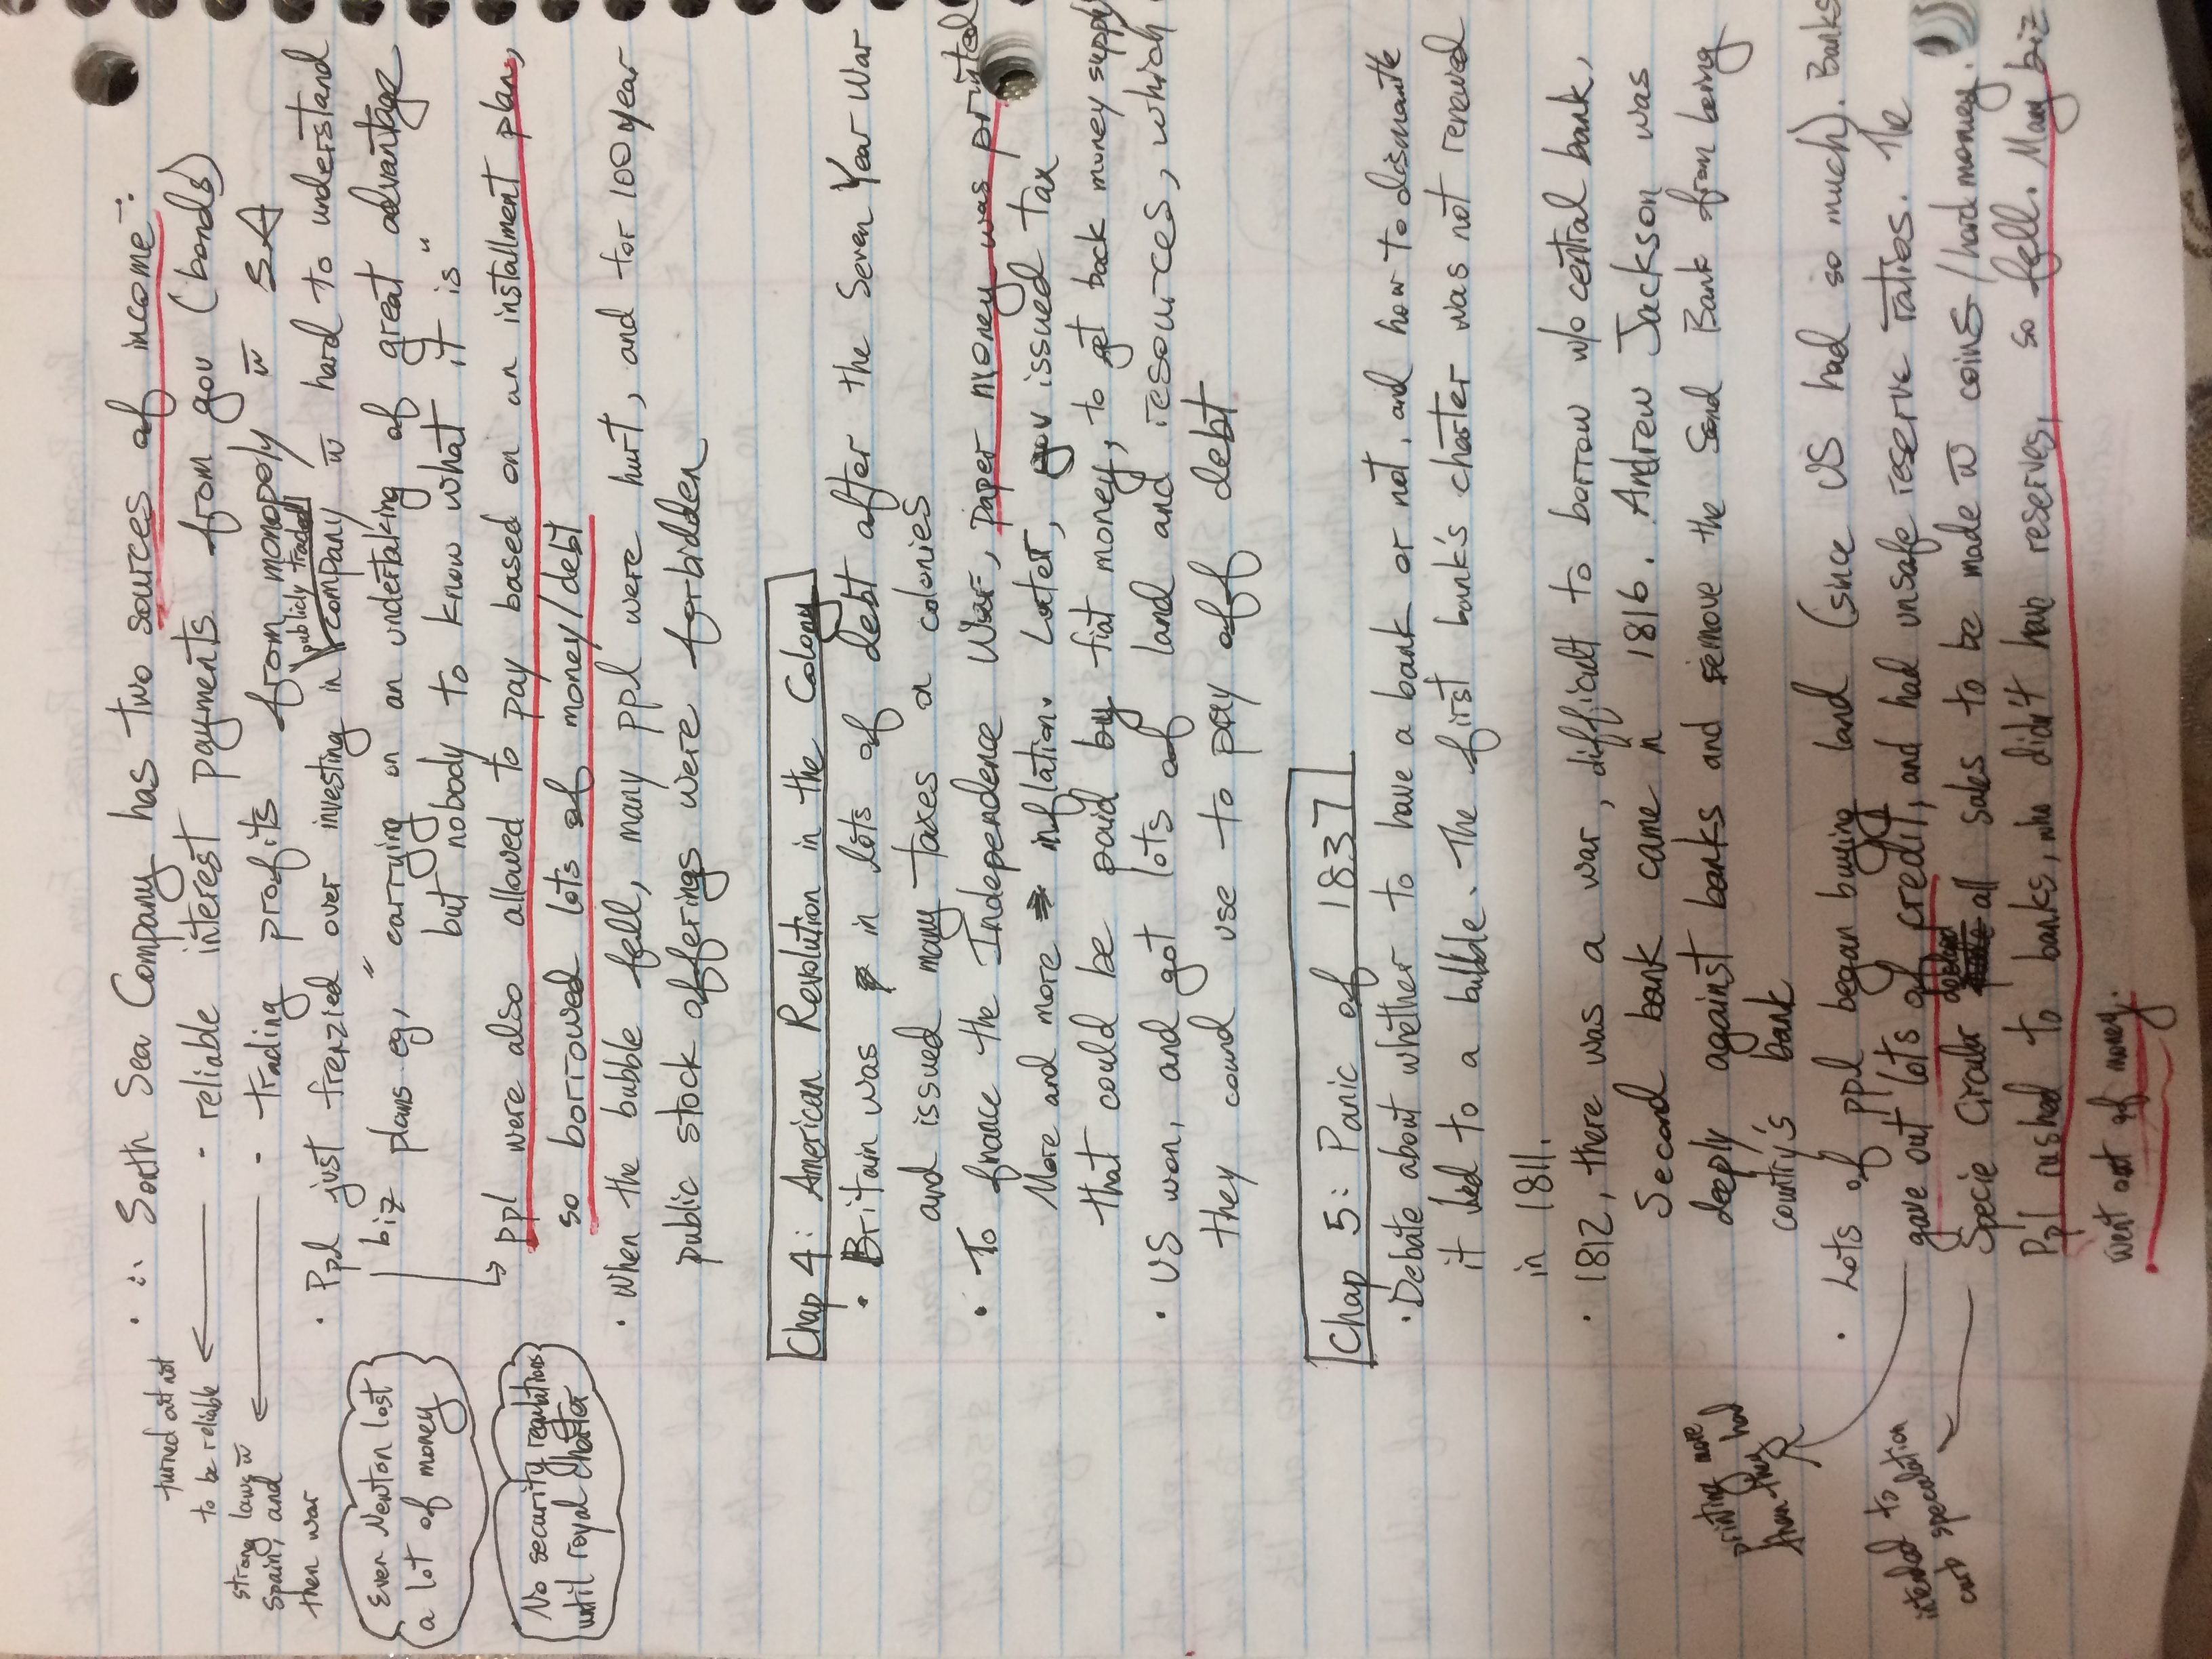 • ∴ South Sea Company has two sources of income:
turned out not
to be reliable
- reliable interest payments from gov (bonds)
strong laws w̄
Spain, and
then war
- trading profits from monopoly w̄ SA
publicly traded
• Ppl just frenzied over investing in company w̄ hard to understand
biz plans eg, "carrying on an undertaking of great advantage
but nobody to know what it is"
Even Newton lost
a lot of money
ppl were also allowed to pay based on an installment plan,
so borrowed lots of money/debt
No security regulations
until royal charter
• When the bubble fell, many ppl were hurt, and for 100 year
public stock offerings were forbidden
Chap 4: American Revolution in the Colony
• Britain was in lots of debt after the Seven Year War
and issued many taxes on colonies
• To finance the Independence War, paper money was printed
More and more inflation. Later, gov issued tax
that could be paid by fiat money, to get back money supply
• US won, and got lots of land and resources, which
they cound use to pay off debt
Chap 5: Panic of 1837
• Debate about whether to have a bank or not, and how to dismantle
it led to a bubble. The first bank's charter was not renewed
in 1811.
• 1812, there was a war, difficult to borrow w/o central bank,
Second bank came in 1816. Andrew Jackson was
deeply against banks and remove the Send Bank from being
country's bank
printing more
than they had
• Lots of ppl began buying land (since US had so much). Banks
gave out lots of credit, and had unsafe reserve ratios. The
intended to
curb speculation
Specie Circular all sales to be made w̄ coins/hard money.
Ppl rushed to banks, who didn't have reserves, so fell. Many biz
went out of money.